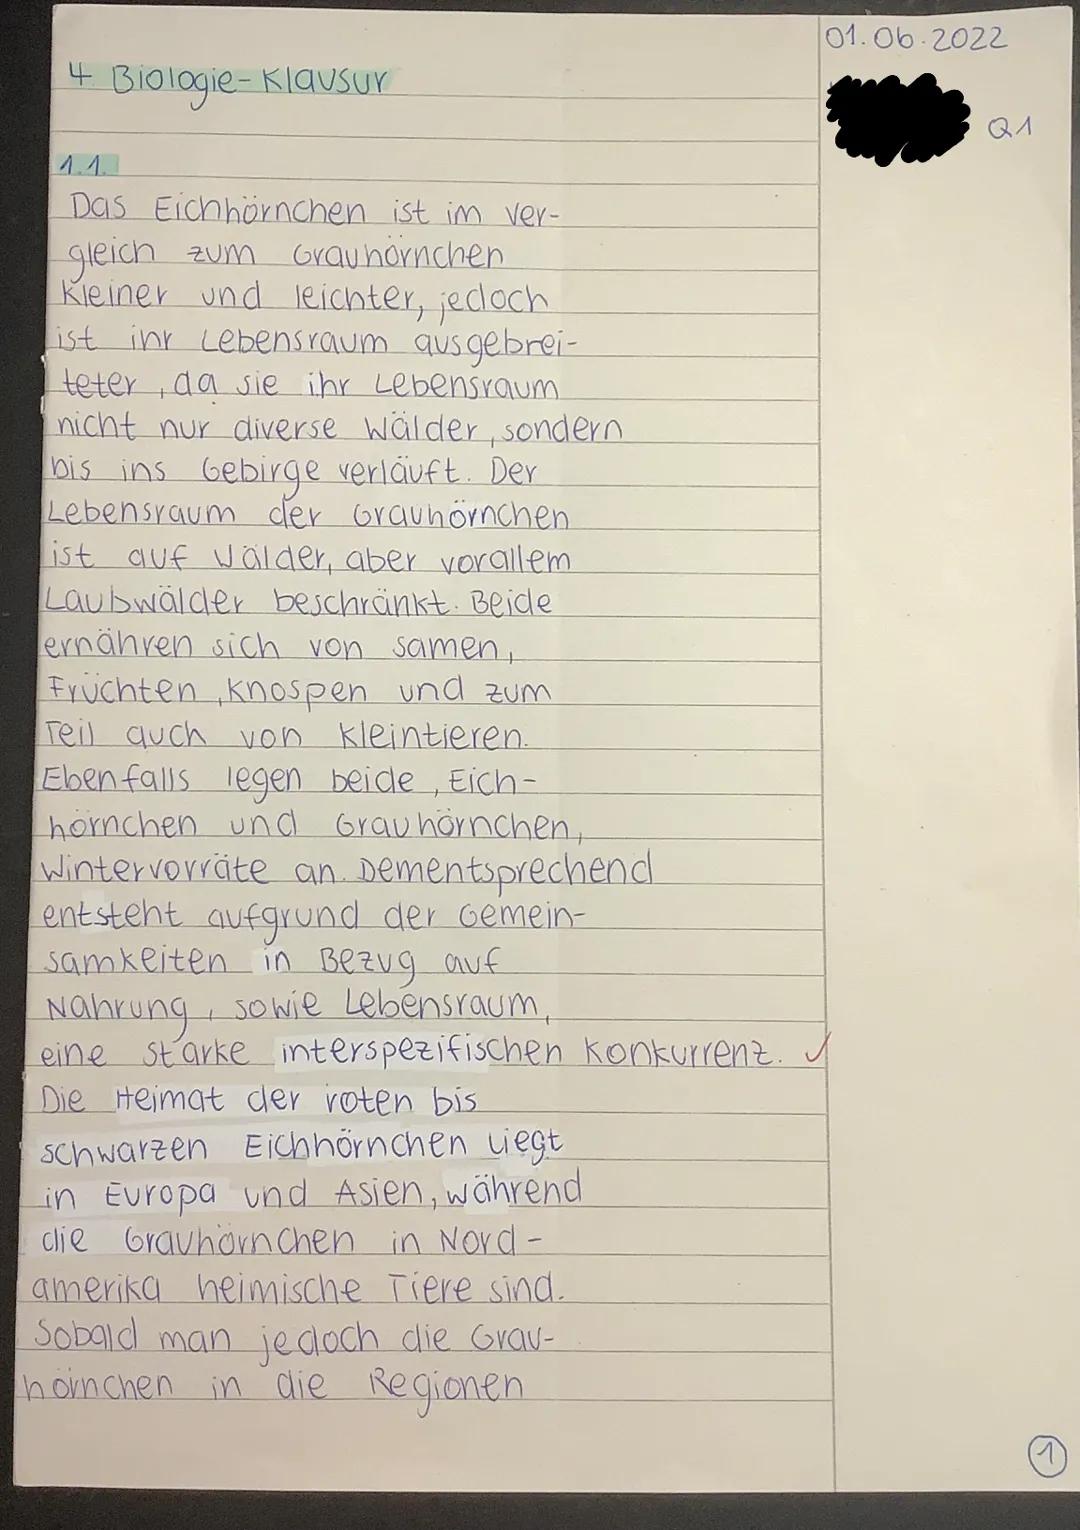 01.06.2022
4. Biologie-Klausur
Q1
1.1.
Das Eichhörnchen ist im ver-
gleich zum Grauhörnchen
kleiner und leichter, jedoch
ist ihr Lebensraum ausgebrei-
teter, da sie ihr Lebensraum
nicht nur diverse Wälder, sondern
bis ins Gebirge verläuft. Der
Lebensraum der Grauhörnchen
ist auf Wälder, aber vorallem
Laubwälder beschränkt. Beide
ernähren sich von samen,
Früchten, Knospen und zum
Teil auch von Kleintieren.
Ebenfalls legen beide, Eich-
hörnchen und Grauhörnchen,
Wintervorräte an. Dementsprechend
entsteht aufgrund der Gemein-
samkeiten in Bezug auf
Nahrung, sowie Lebensraum,
eine starke interspezifischen Konkurrenz. ✓
Die Heimat der roten bis
schwarzen Eichhörnchen liegt
in Europa und Asien, während
die Grauhörnchen in Nord-
amerika heimische Tiere sind.
Sobald man jedoch die Grau-
hörnchen in die Regionen
1